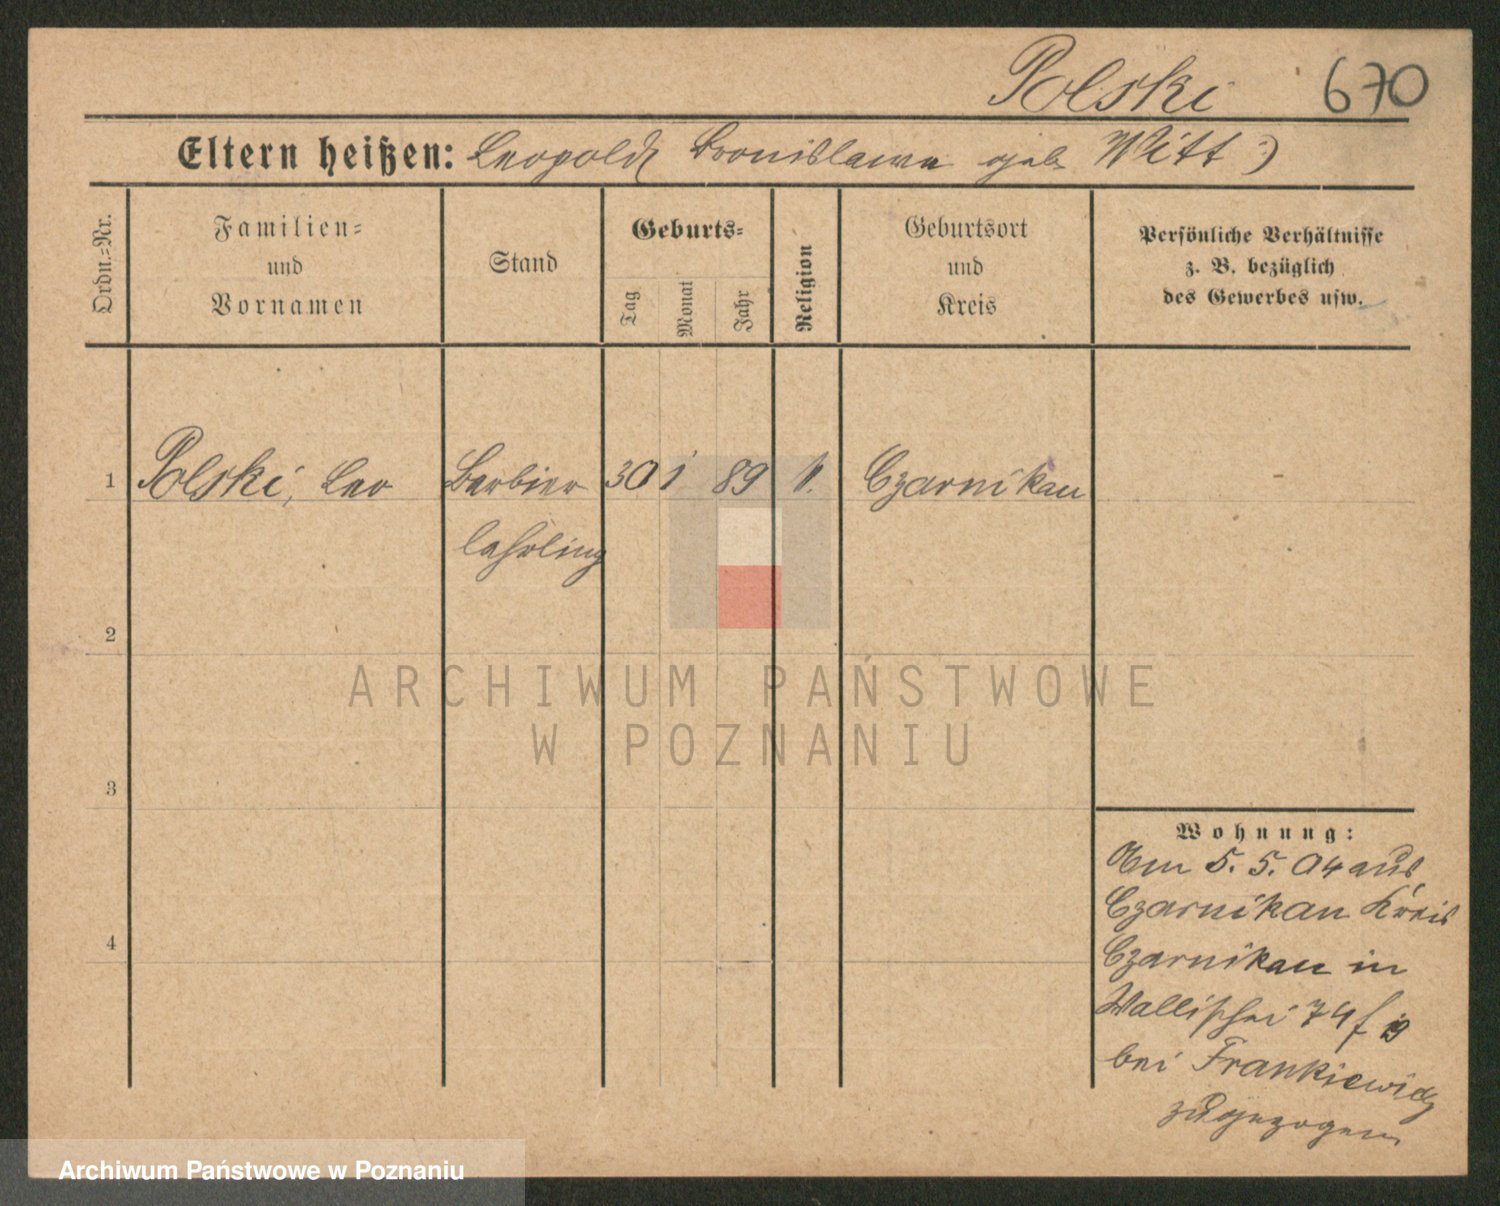 Polski 670
Eltern heißen: Leopold Bronislawa geb. Witt
Ordn.-Nr.
Familien-
und
Vornamen
Stand
Geburts-
Tag
Monat
Jahr
Religion
Geburtsort
und
Kreis
Persönliche Verhältnisse
z. B. bezüglich
des Gewerbes usw.
1 Polski, Leo Barbier 30 1 89 k. Czarnikau
lehrling
2
3
4
Wohnung:
Am 5. 5. 04 aus
Czarnikau Kreis
Czarnikau in
Wallischei 74
bei Frankiewicz
zugezogen
ARCHIWUM PAŃSTWOWE
W POZNANIU
Archiwum Państwowe w Poznaniu